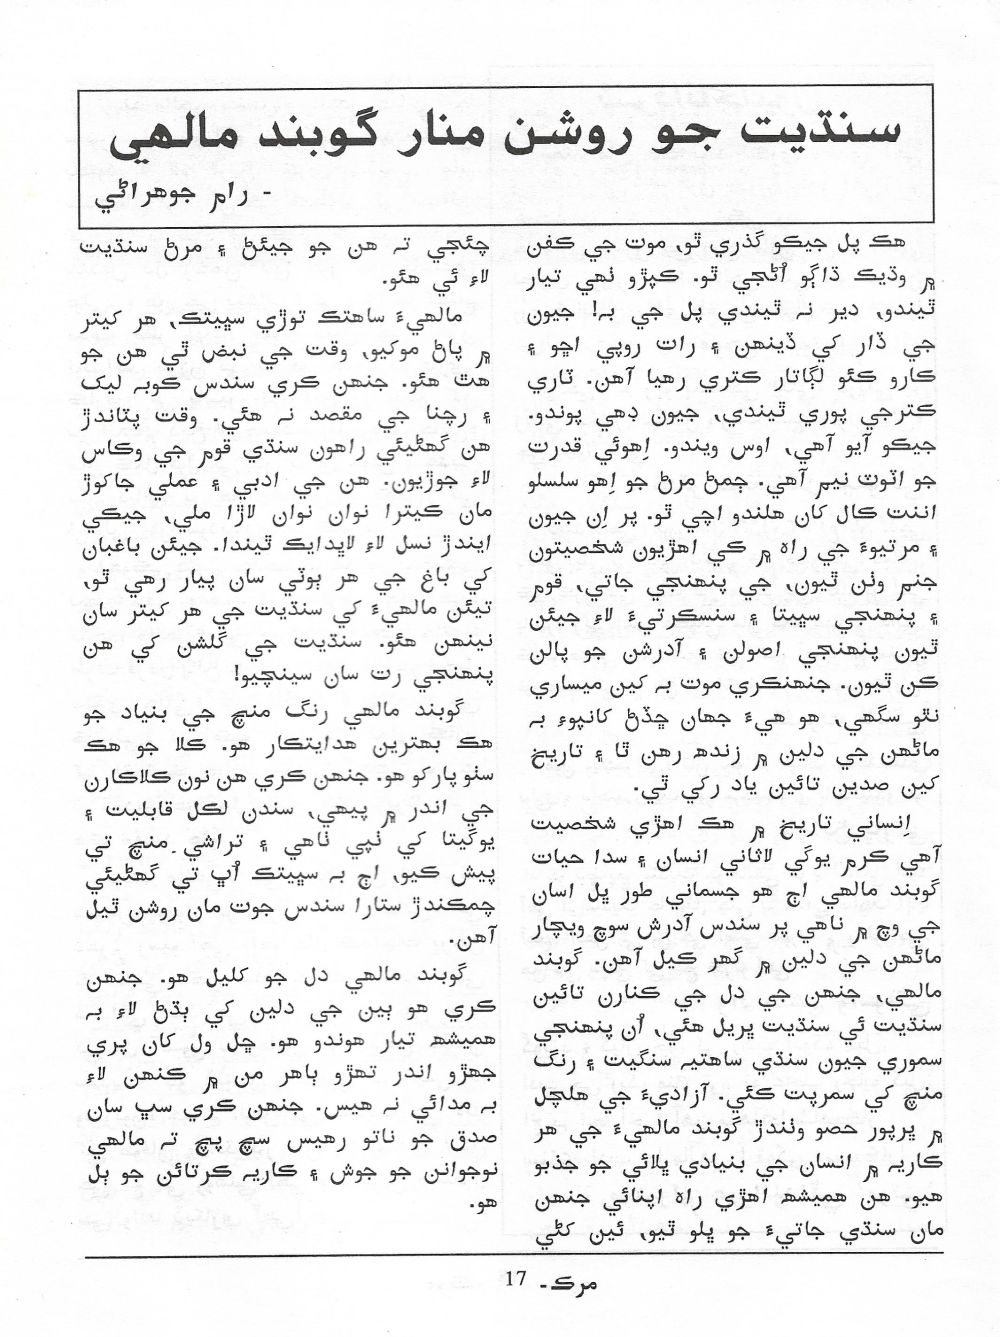 سنڌيت جو روشن منار گوبند مالهي
- رام جوهراڻي
هڪ پل جيڪو گذري ٿو، موت جي ڪفن
۾ وڌيڪ ڌاڳو اُڻجي ٿو. ڪپڙو ٺهي تيار
ٿيندو، دير نہ ٿيندي پل جي بہ! جيون
جي ڏار کي ڏينهن ۽ رات روپي اڇو ۽
ڪارو ڪئو لڳاتار ڪتري رهيا آهن. ٽاري
ڪترجي پوري ٿيندي، جيون ڊهي پوندو.
جيڪو آيو آهي، اوس ويندو. اِهوئي قدرت
جو اٽوٽ نيم آهي. ڄمڻ مرڻ جو اِهو سلسلو
اننت ڪال کان هلندو اچي ٿو. پر اِن جيون
۽ مرتيوءَ جي راه ۾ ڪي اهڙيون شخصيتون
جنم وٺن ٿيون، جي پنهنجي جاتي، قوم
۽ پنهنجي سڀيتا ۽ سنسڪرتيءَ لاءِ جيئن
ٿيون پنهنجي اصولن ۽ آدرشن جو پالن
ڪن ٿيون. جنهنڪري موت بہ کين ميساري
نٿو سگهي، هو هيءَ جهان ڇڏڻ کانپوءِ بہ
ماڻهن جي دلين ۾ زندھ رهن ٿا ۽ تاريخ
کين صدين تائين ياد رکي ٿي.
اِنساني تاريخ ۾ هڪ اهڙي شخصيت
آهي ڪرم يوگي لاثاني انسان ۽ سدا حيات
گوبند مالهي اڄ هو جسماني طور ڀل اسان
جي وچ ۾ ناهي پر سندس آدرش سوچ ويچار
ماڻهن جي دلين ۾ گهر ڪيل آهن. گوبند
مالهي، جنهن جي دل جي ڪنارن تائين
سنڌيت ئي سنڌيت ڀريل هئي، اُن پنهنجي
سموري جيون سنڌي ساهتيہ سنگيت ۽ رنگ
منچ کي سمرپت ڪئي. آزاديءَ جي هلچل
۾ ڀرپور حصو وٺندڙ گوبند مالهيءَ جي هر
ڪاريہ ۾ انسان جي بنيادي ڀلائي جو جذبو
هيو. هن هميشھ اهڙي راه اپنائي جنهن
مان سنڌي جاتيءَ جو ڀلو ٿيو، ئين کڻي
چئجي تہ هن جو جيئڻ ۽ مرڻ سنڌيت
لاءِ ئي هئو.
مالهيءَ ساهتڪ توڙي سڀيتڪ، هر کيتر
۾ پاڻ موکيو، وقت جي نبض تي هن جو
هٿ هئو. جنهن ڪري سندس ڪوبہ ليک
۽ رچنا جي مقصد نہ هئي. وقت پٽاندڙ
هن گهڻيئي راهون سنڌي قوم جي وڪاس
لاءِ جوڙيون. هن جي ادبي ۽ عملي جاکوڙ
مان ڪيترا نوان نوان لاڙا ملي، جيڪي
ايندڙ نسل لاءِ لاڀدايڪ ٿيندا. جيئن باغبان
کي باغ جي هر ٻوٽي سان پيار رهي ٿو،
تيئن مالهيءَ کي سنڌيت جي هر کيتر سان
نينهن هئو. سنڌيت جي گلشن کي هن
پنهنجي رت سان سينچيو!
گوبند مالهي رنگ منچ جي بنياد جو
هڪ بهترين هدايتڪار هو. ڪلا جو هڪ
سٺو پارکو هو. جنهن ڪري هن نون ڪلاڪارن
جي اندر ۾ پيهي، سندن لڪل قابليت ۽
يوگيتا کي نپي ٺاهي ۽ تراشي منچ تي
پيش ڪيو، اڄ بہ سڀيتڪ اُڀ تي گهڻيئي
چمڪندڙ ستارا سندس جوت مان روشن ٿيل
آهن.
گوبند مالهي دل جو کليل هو. جنهن
ڪري هو ٻين جي دلين کي ٻڌڻ لاءِ بہ
هميشھ تيار هوندو هو. ڇل ول کان پري
جهڙو اندر تهڙو ٻاهر من ۾ ڪنهن لاءِ
بہ مدائي نہ هيس. جنهن ڪري سڀ سان
صدق جو ناتو رهيس سچ پچ تہ مالهي
نوجوانن جو جوش ۽ ڪاريہ ڪرتائن جو ٻل
هو.
مرڪ - 17